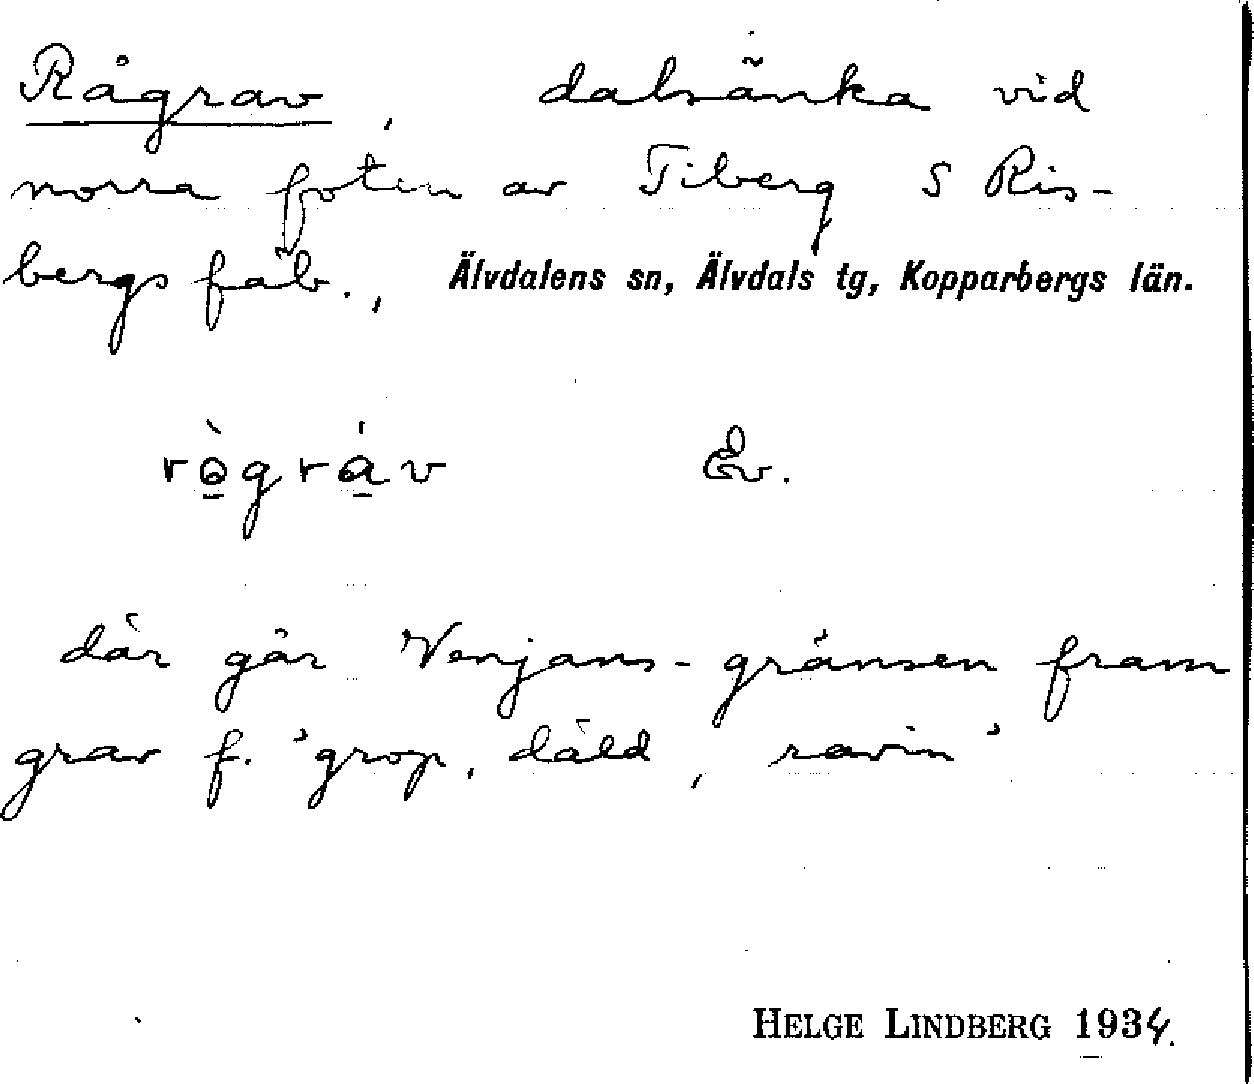 Rågrav, dalsänka vid
norra foten av Tiberg S Ris-
bergs fäb., Älvdalens sn, Älvdals tg, Kopparbergs län.
rò̱grá̱v Ev.
där går Venjans-gränsen fram
grav f. 'grop, däld, ravin'
HELGE LINDBERG 1934.